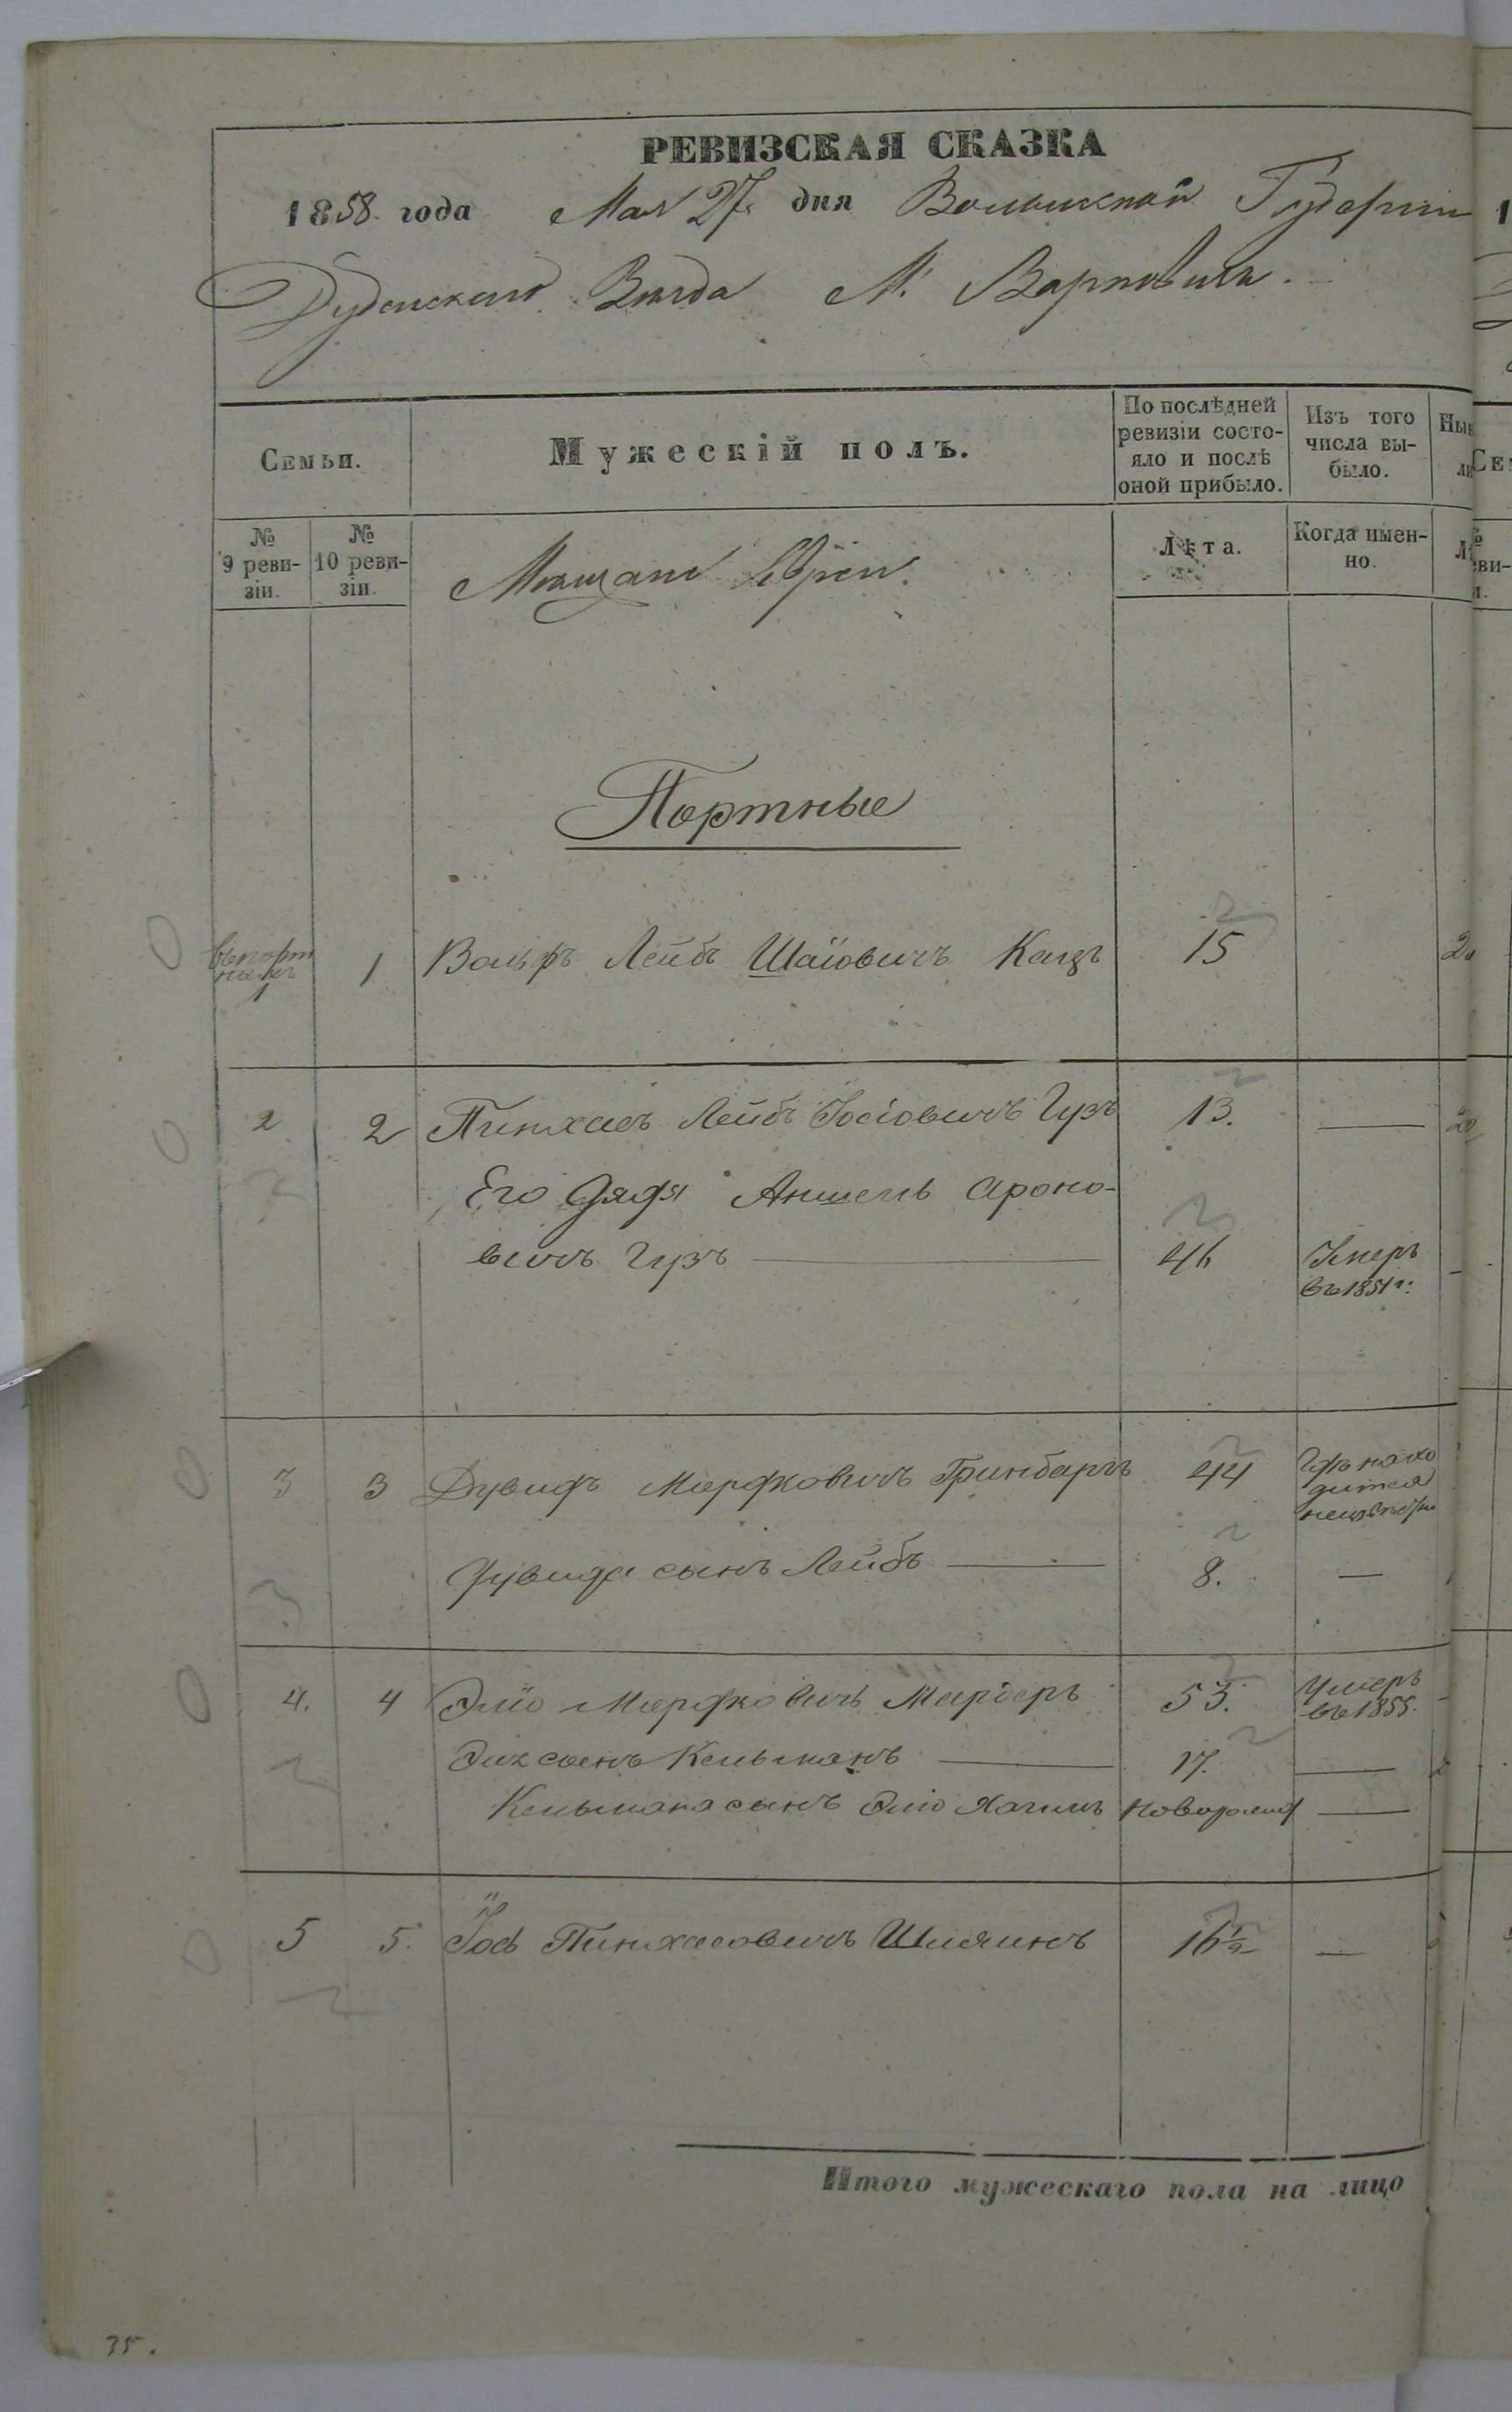 РЕВИЗСКАЯ СКАЗКА
1858 года Мая 27 дня Волынской Губерніи
Дубенскаго Уѣзда М. Варковичи.
Семьи.
Мужескій полъ.
По послѣдней
ревизіи состо-
яло и послѣ
оной прибыло.
Изъ того
числа вы-
было.
№
9 реви-
зіи.
№
10 реви-
зіи.
Мѣщане Евреи.
Лѣта.
Когда имен-
но.
Портные
въ порт
ныхъ
1
1 Вольфъ Лейбъ Шаіовичъ Кацъ 15
2 2 Пинхасъ Лейбъ Іосіовичъ Гузъ 13. —
Его дядя Аншель Ароно-
вичъ Гузъ — 46 Умеръ
въ 1851 г.
3 3 Дувидъ Мордковичъ Гринбаргъ 44 Гдѣ нахо
дится
неизвѣстно
Дувида сынъ Лейбъ — 8. —
4. 4 Эліо Мордковичъ Марберъ 53. Умеръ
въ 1855.
Эліи сынъ Кельманъ — 17. —
Кельмана сынъ Эліо Хаимъ новорожд —
5 5. Іось Пинхасовичъ 16½ —
Итого мужескаго пола на лицо
35.